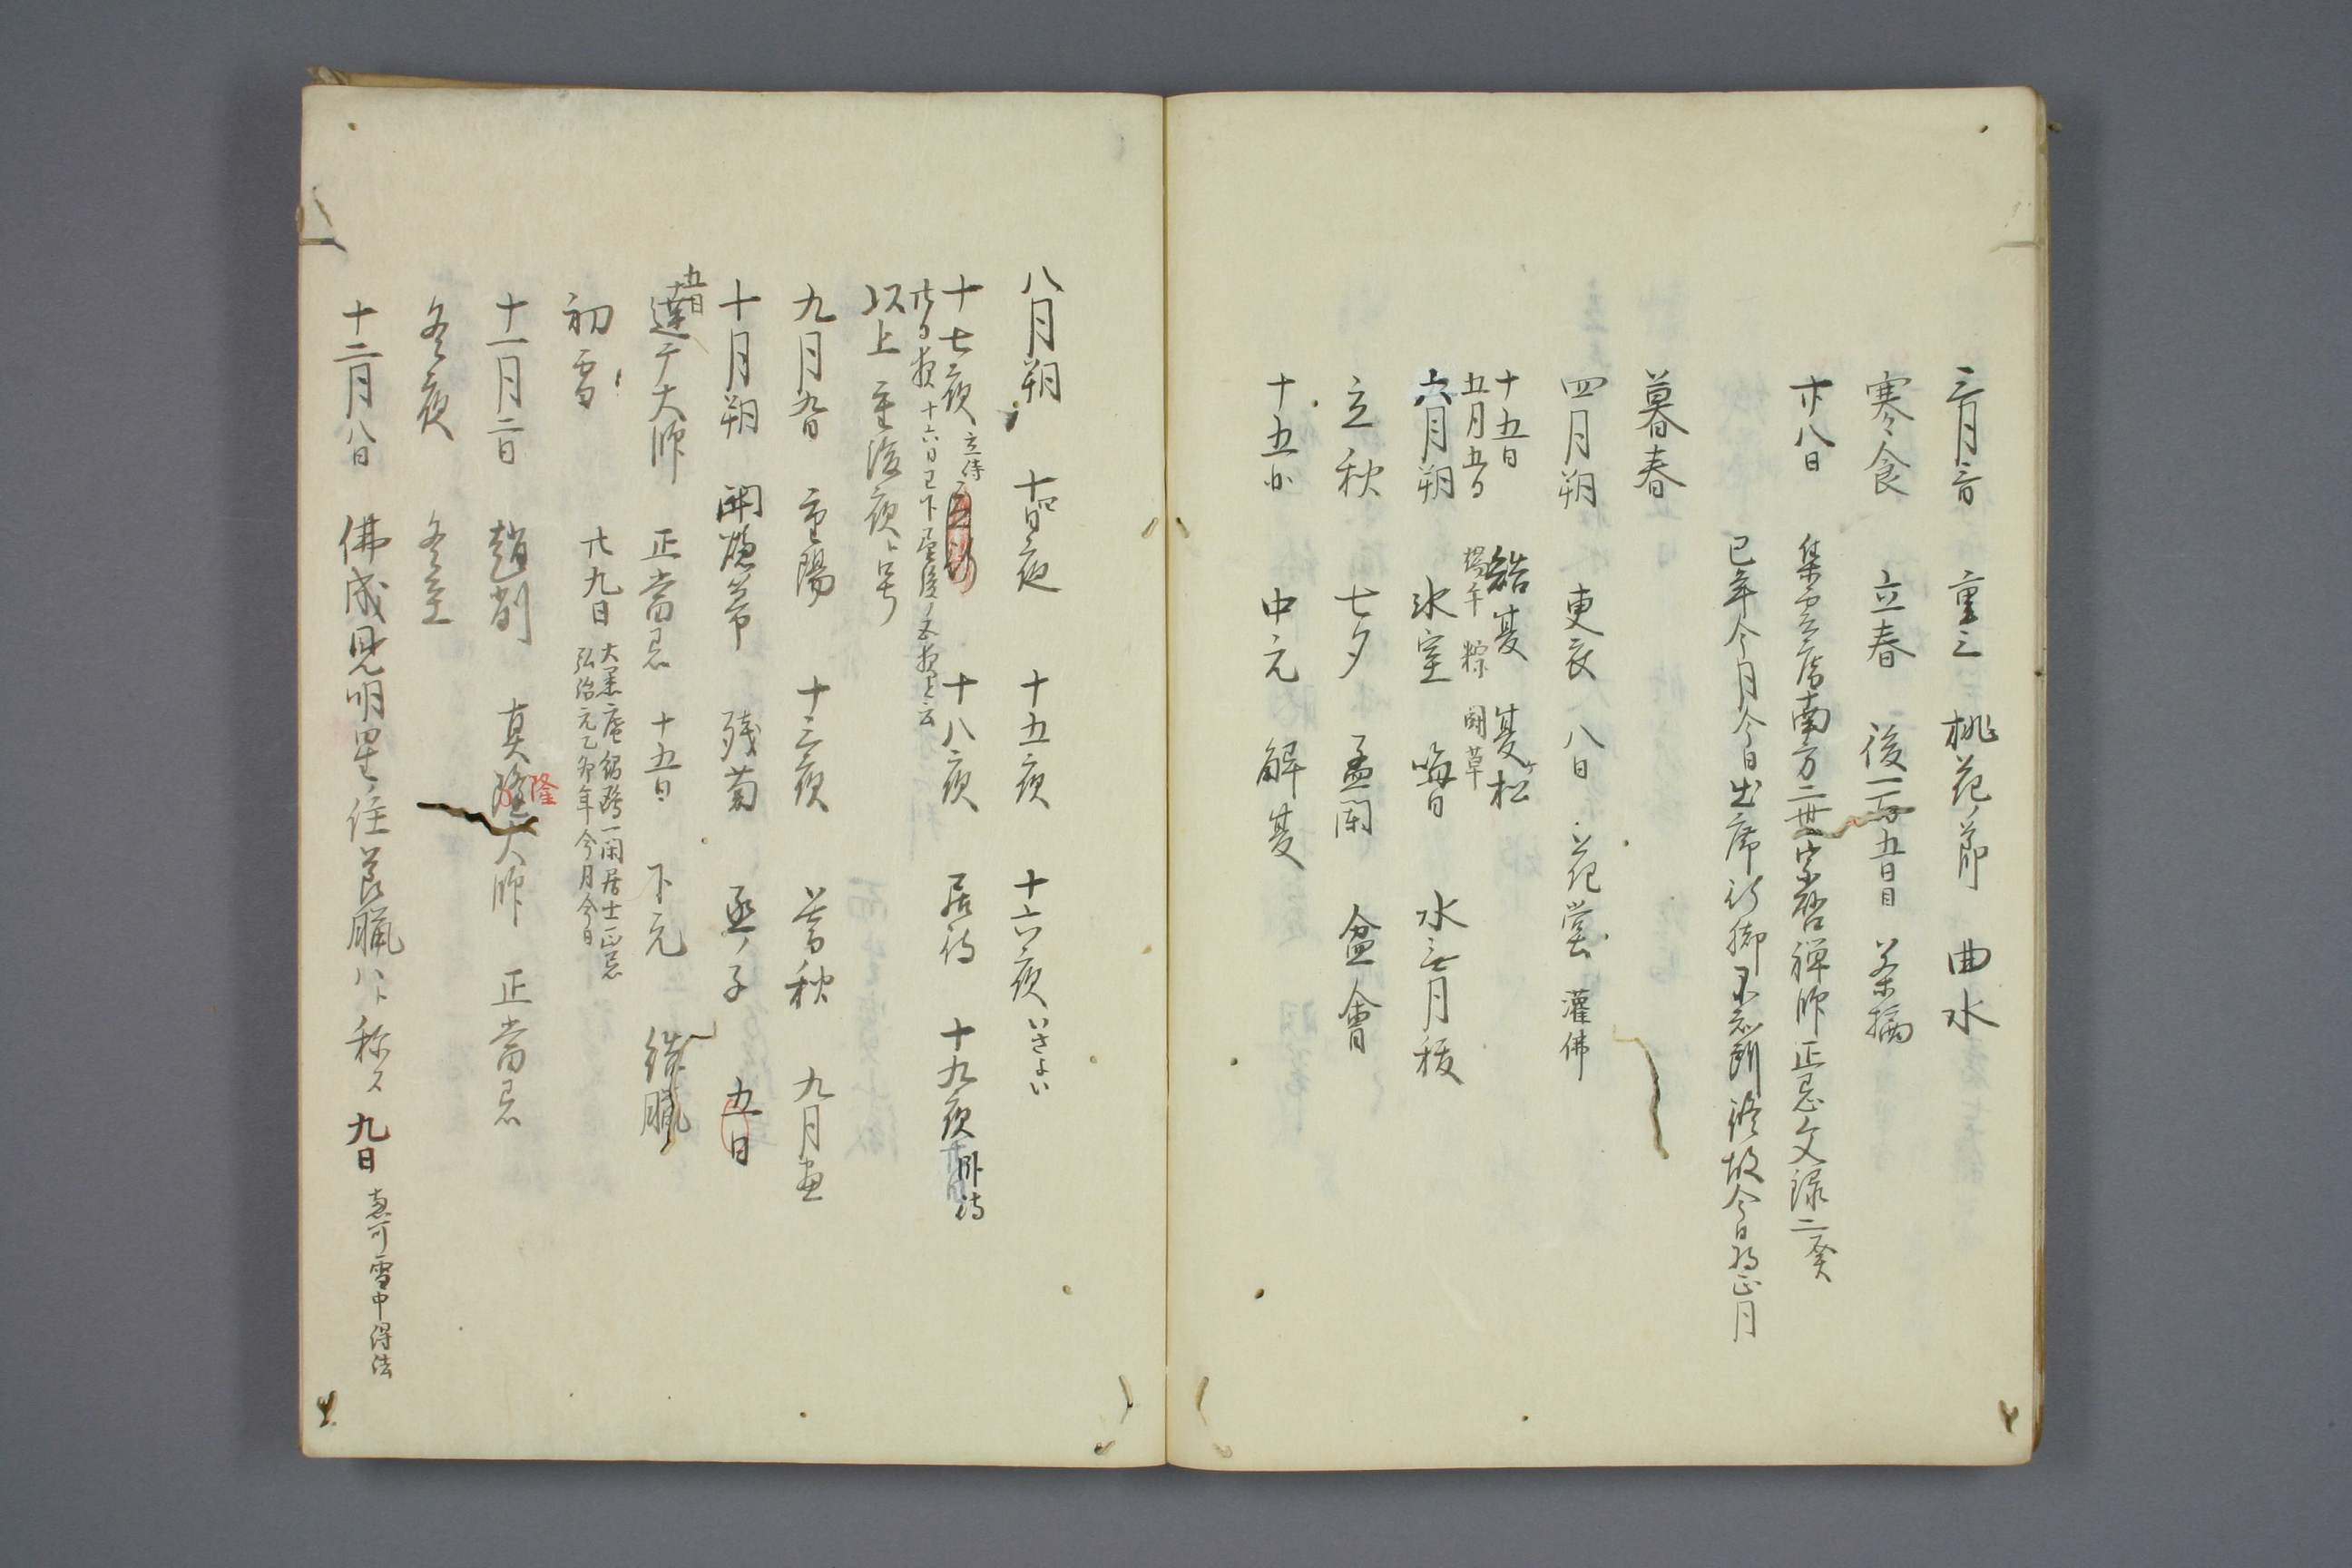 三月三日 重三 桃花ノ節 曲水
寒食 立春 後一百五日目 茶摘
廿八日 集雲庵南方二世宗啓禅師正忌文禄二癸
巳年今月今日出席行脚不知所終故今日為正月
暮春
四月朔 更衣 八日 花堂 灌佛
十五日 結夏 夏松
五月五日 端午 粽 闘草
六月朔 氷室 晦日 水無月祓
立秋 七夕 盂蘭盆會
十五日 中元 解夏
八月朔 十四日夜 十五夜 十六夜 いさよい
十七夜 立待 十八夜 居待 十九夜 臥待
廿日夜 十六日已下
以上
九月九日 重陽 十三夜 暮秋 九月盡
十月朔 開爐節 残菊 亥ノ子 五日
五日 達广大師 正當忌 十五日 下元
初雪 廿九日 大黒庵紹鴎一閑居士正忌
弘治元乙卯年今月今日
十一月二日 趙州 真隆大師 正當忌
隆
冬夜 冬至
十二月八日 佛成見明星ノ 臘八ト称ス 九日 恵可雪中得法